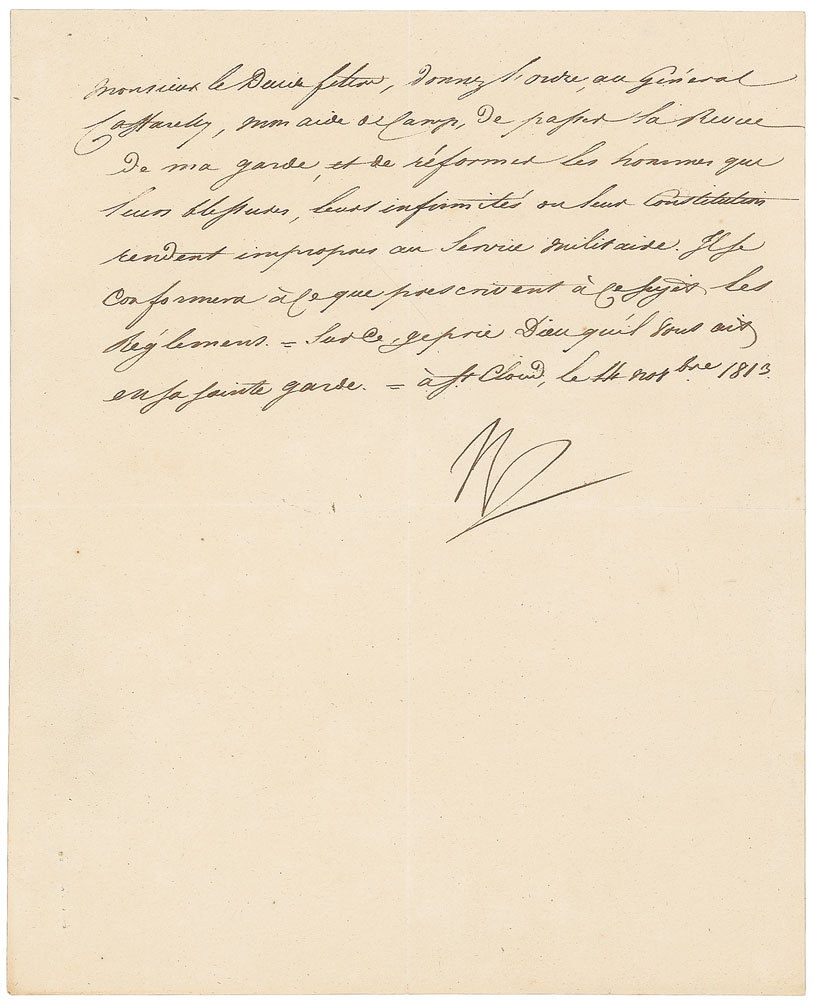 Monsieur le Duc de feltre, donnez l'ordre, au Général
Caffarelly, mon aide de Camp, de passer la Revue
de ma garde, et de réformer les hommes que
leurs blessures, leurs infirmités ou leur Constitution
rendent impropres au Service militaire. Il se
Conformera à Ce que prescrivent à Ce sujet, les
Réglemens. = Sur Ce, je prie Dieu qu'il vous ait
en sa sainte garde. = à St. Cloud, le 14 novbre 1813.